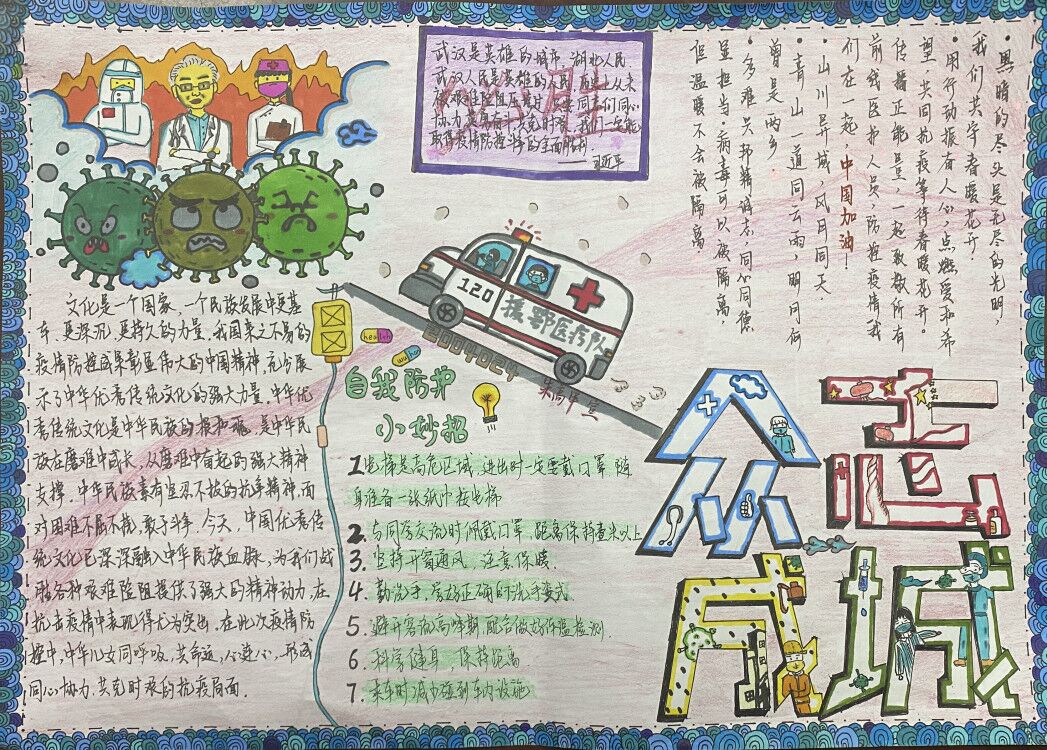 武汉是英雄的城市,湖北人民
武汉人民是英雄的人民,历史上从未
被艰难险阻压垮过,只要同志们同心
协力
取得疫情防控斗争的全面胜利.
——习近平
·黑暗的尽头是无尽的光明,
我们共守春暖花开.
·用行动振奋人心,点燃爱和希
望.共同抗疫等待春暖花开.
传播正能量,一起致敬所有
前线医护人员,防控疫情我
们在一起,中国加油!
·山川异域,风月同天.
·青山一道同云雨,明月何
曾是两乡
·多难兴邦精诚志,同心同德
显担当.病毒可以被隔离,
但温暖不会被隔离.
120
援鄂医疗队
health
2004024
朱高华昱
文化是一个国家、一个民族发展中更基
本、更深沉、更持久的力量.我国来之不易的
疫情防控成果彰显伟大的中国精神,充分展
示了中华优秀传统文化的强大力量.中华优
秀传统文化是中华民族的根和魂,是中华民
族在磨难中成长、从磨难中奋起的强大精神
支撑.中华民族素有坚忍不拔的抗争精神,面
对困难不屈不挠、敢于斗争.今天,中国优秀传
统文化已深深融入中华民族血脉,为我们战
胜各种艰难险阻提供了强大的精神动力,在
抗击疫情中表现得尤为突出.在此次疫情防
控中,中华儿女同呼吸、共命运,心连心,形成
同心协力、共克时艰的抗疫局面.
自我防护
小妙招
1电梯是高危区域,进出时一定要戴口罩,随
身准备一张纸巾按电梯
2.与同学交流时佩戴口罩,距离保持壹米以上
3.坚持开窗通风,注意保暖.
4.勤洗手,学好正确的洗手姿式
5.避开客流高峰期,配合做好体温检测.
6.科学健身 保持距离
7.乘车时减少碰到车内设施
众志
成城